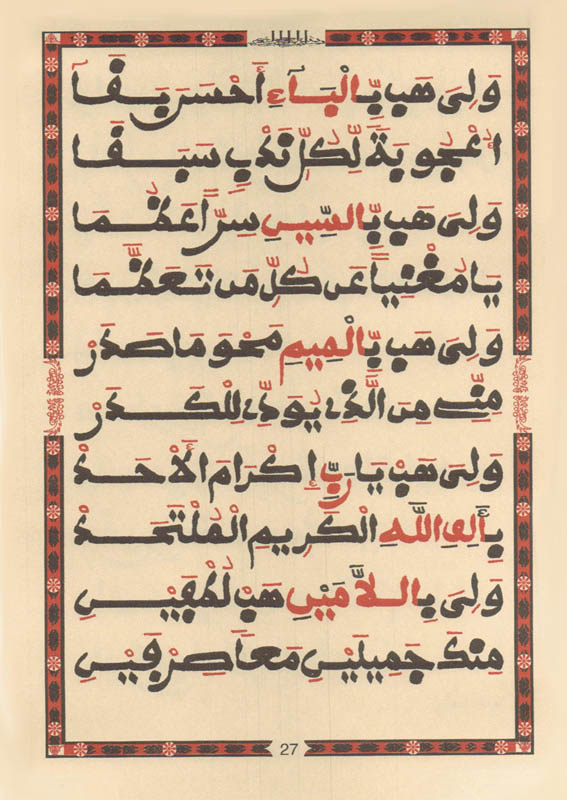 وَلِيَ هَب بِّالْبَاءِ أَحْسَن بَقَا
أُعْجُوبَةً لِّكُلِّ نَدْبٍ سَبَقَا
وَلِيَ هَب بِّالسِّينِ سِرًّا عَظُمَا
يَا مُغْنِيًا عَن كُلِّ مَن تَعَظَّمَا
وَلِيَ هَب بِّالْمِيمِ مَحْوَ مَا صَدَرْ
مِنِّي مِنَ الَّذِي يُوَدِّي لِلْكَدَرْ
وَلِيَ هَبْ يَا رَبِّ إِكْرَامَ الْأَحَدْ
بِأَلِفِ اللَّهِ الْكَرِيمِ الْمُلْتَحَدْ
وَلِيَ بِاللَّامَيْنِ هَبْ لُطْفَيْنِ
مِنكَ جَمِيلَيْنِ مَعًا صِرْفَيْنِ
27